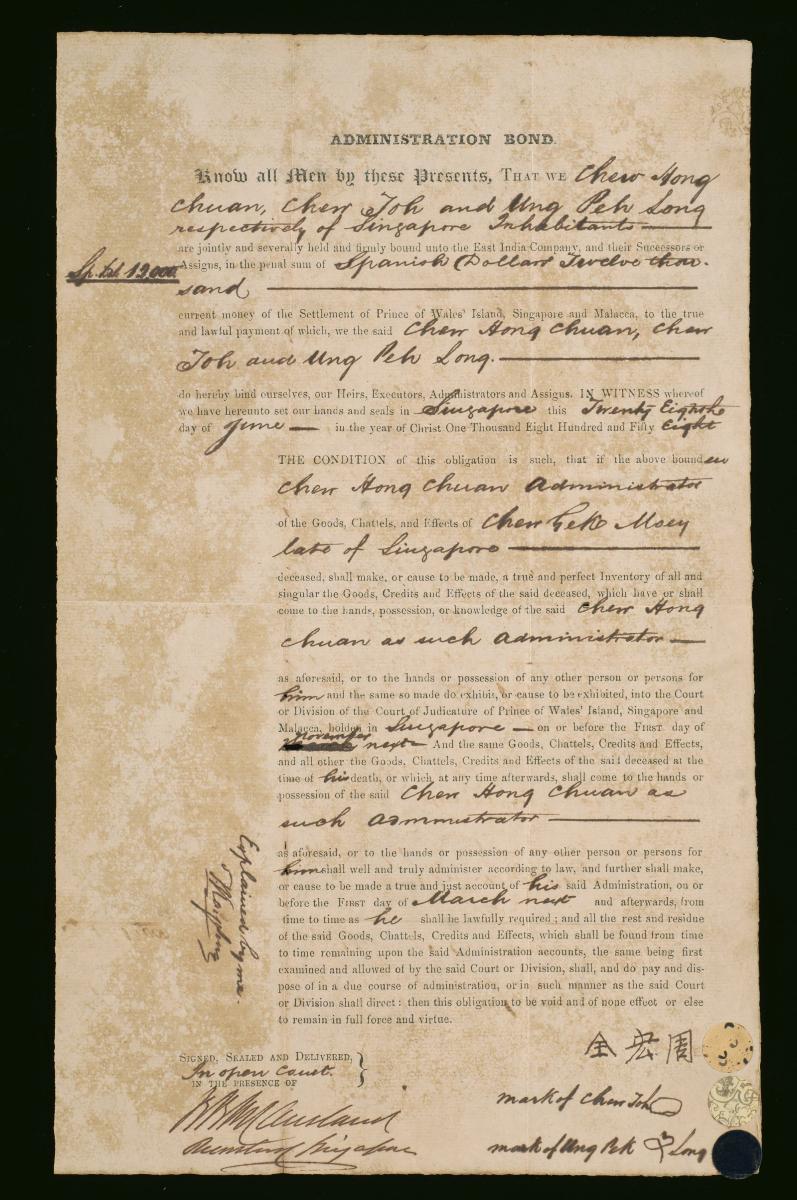 ADMINISTRATION BOND.
Know all Men by these Presents, THAT WE Chew Hong
Chuan, Chew Joh and Ung Peh Long
respectively of Singapore Inhabitants
are jointly and severally held and firmly bound unto the East India Company, and their Successors or
Sp. Drs 12,000
Assigns, in the penal sum of Spanish Dollars Twelve thou-
sand
current money of the Settlement of Prince of Wales' Island, Singapore and Malacca, to the true
and lawful payment of which, we the said Chew Hong Chuan, Chew
Joh and Ung Peh Long.
do hereby bind ourselves, our Heirs, Executors, Administrators and Assigns. IN WITNESS whereof
we have hereunto set our hands and seals in Singapore this Twenty Eighth
day of June in the year of Christ One Thousand Eight Hundred and Fifty Eight
THE CONDITION of this obligation is such, that if the above bounden
Chew Hong Chuan Administrator
of the Goods, Chattels, and Effects of Chew Gek Moey
late of Singapore
deceased, shall make, or cause to be made, a true and perfect Inventory of all and
singular the Goods, Credits and Effects of the said deceased, which have or shall
come to the hands, possession, or knowledge of the said Chew Hong
Chuan as such Administrator
as aforesaid, or to the hands or possession of any other person or persons for
him and the same so made do exhibit, or cause to be exhibited, into the Court
or Division of the Court of Judicature of Prince of Wales' Island, Singapore and
Malacca, holden in Singapore on or before the FIRST day of
November next And the same Goods, Chattels, Credits and Effects,
and all other the Goods, Chattels, Credits and Effects of the said deceased at the
time of his death, or which at any time afterwards, shall come to the hands or
possession of the said Chew Hong Chuan as
such Administrator
as aforesaid, or to the hands or possession of any other person or persons for
him shall well and truly administer according to law, and further shall make,
or cause to be made a true and just account of his said Administration, on or
before the FIRST day of March next and afterwards, from
time to time as he shall be lawfully required; and all the rest and residue
of the said Goods, Chattels, Credits and Effects, which shall be found from time
to time remaining upon the said Administration accounts, the same being first
examined and allowed of by the said Court or Division, shall, and do pay and dis-
pose of in a due course of administration, or in such manner as the said Court
or Division shall direct: then this obligation to be void and of none effect or else
to remain in full force and virtue.
Explained by me.
SIGNED, SEALED AND DELIVERED,
In open Court.
IN THE PRESENCE OF
全宏周
mark of Chew Joh
mark of Ung Pek Long